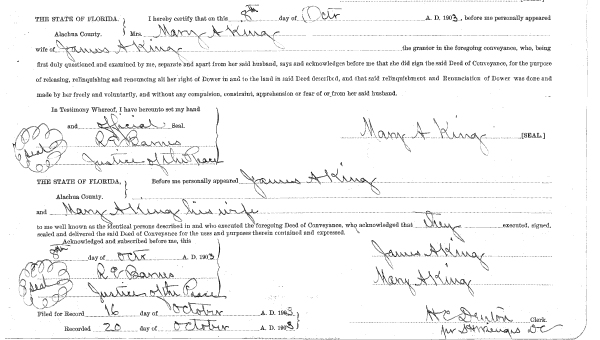 THE STATE OF FLORIDA. } I hereby certify that on this 8th day of Octr A. D. 1903, before me personally appeared
Alachua County. Mrs. Mary A King
wife of James A King the grantor in the foregoing conveyance, who, being
first duly questioned and examined by me, separate and apart from her said husband, says and acknowledges before me that she did sign the said Deed of Conveyance, for the purpose
of releasing, relinquishing and renouncing all her right of Dower in and to the land in said Deed described, and that said relinquishment and Renunciation of Dower was done and
made by her freely and voluntarily, and without any compulsion, constraint, apprehension or fear of or from her said husband.
In Testimony Whereof, I have hereunto set my hand
and official Seal.
Seal R E Barnes Mary A King [SEAL]
Justice of the Peace
THE STATE OF FLORIDA. } Before me personally appeared James A King
Alachua County.
and Mary A King his wife
to me well known as the identical persons described in and who executed the foregoing Deed of Conveyance, who acknowledged that they executed, signed,
sealed and delivered the said Deed of Conveyance for the uses and purposes therein contained and expressed.
Acknowledged and subscribed before me, this
8th day of Octr A. D. 1903 James A King
Seal R E Barnes Mary A King
Justice of the Peace
Filed for Record 16 day of October A. D. 1903 H C Denton Clerk.
Recorded 20 day of October A. D. 1903 per D C